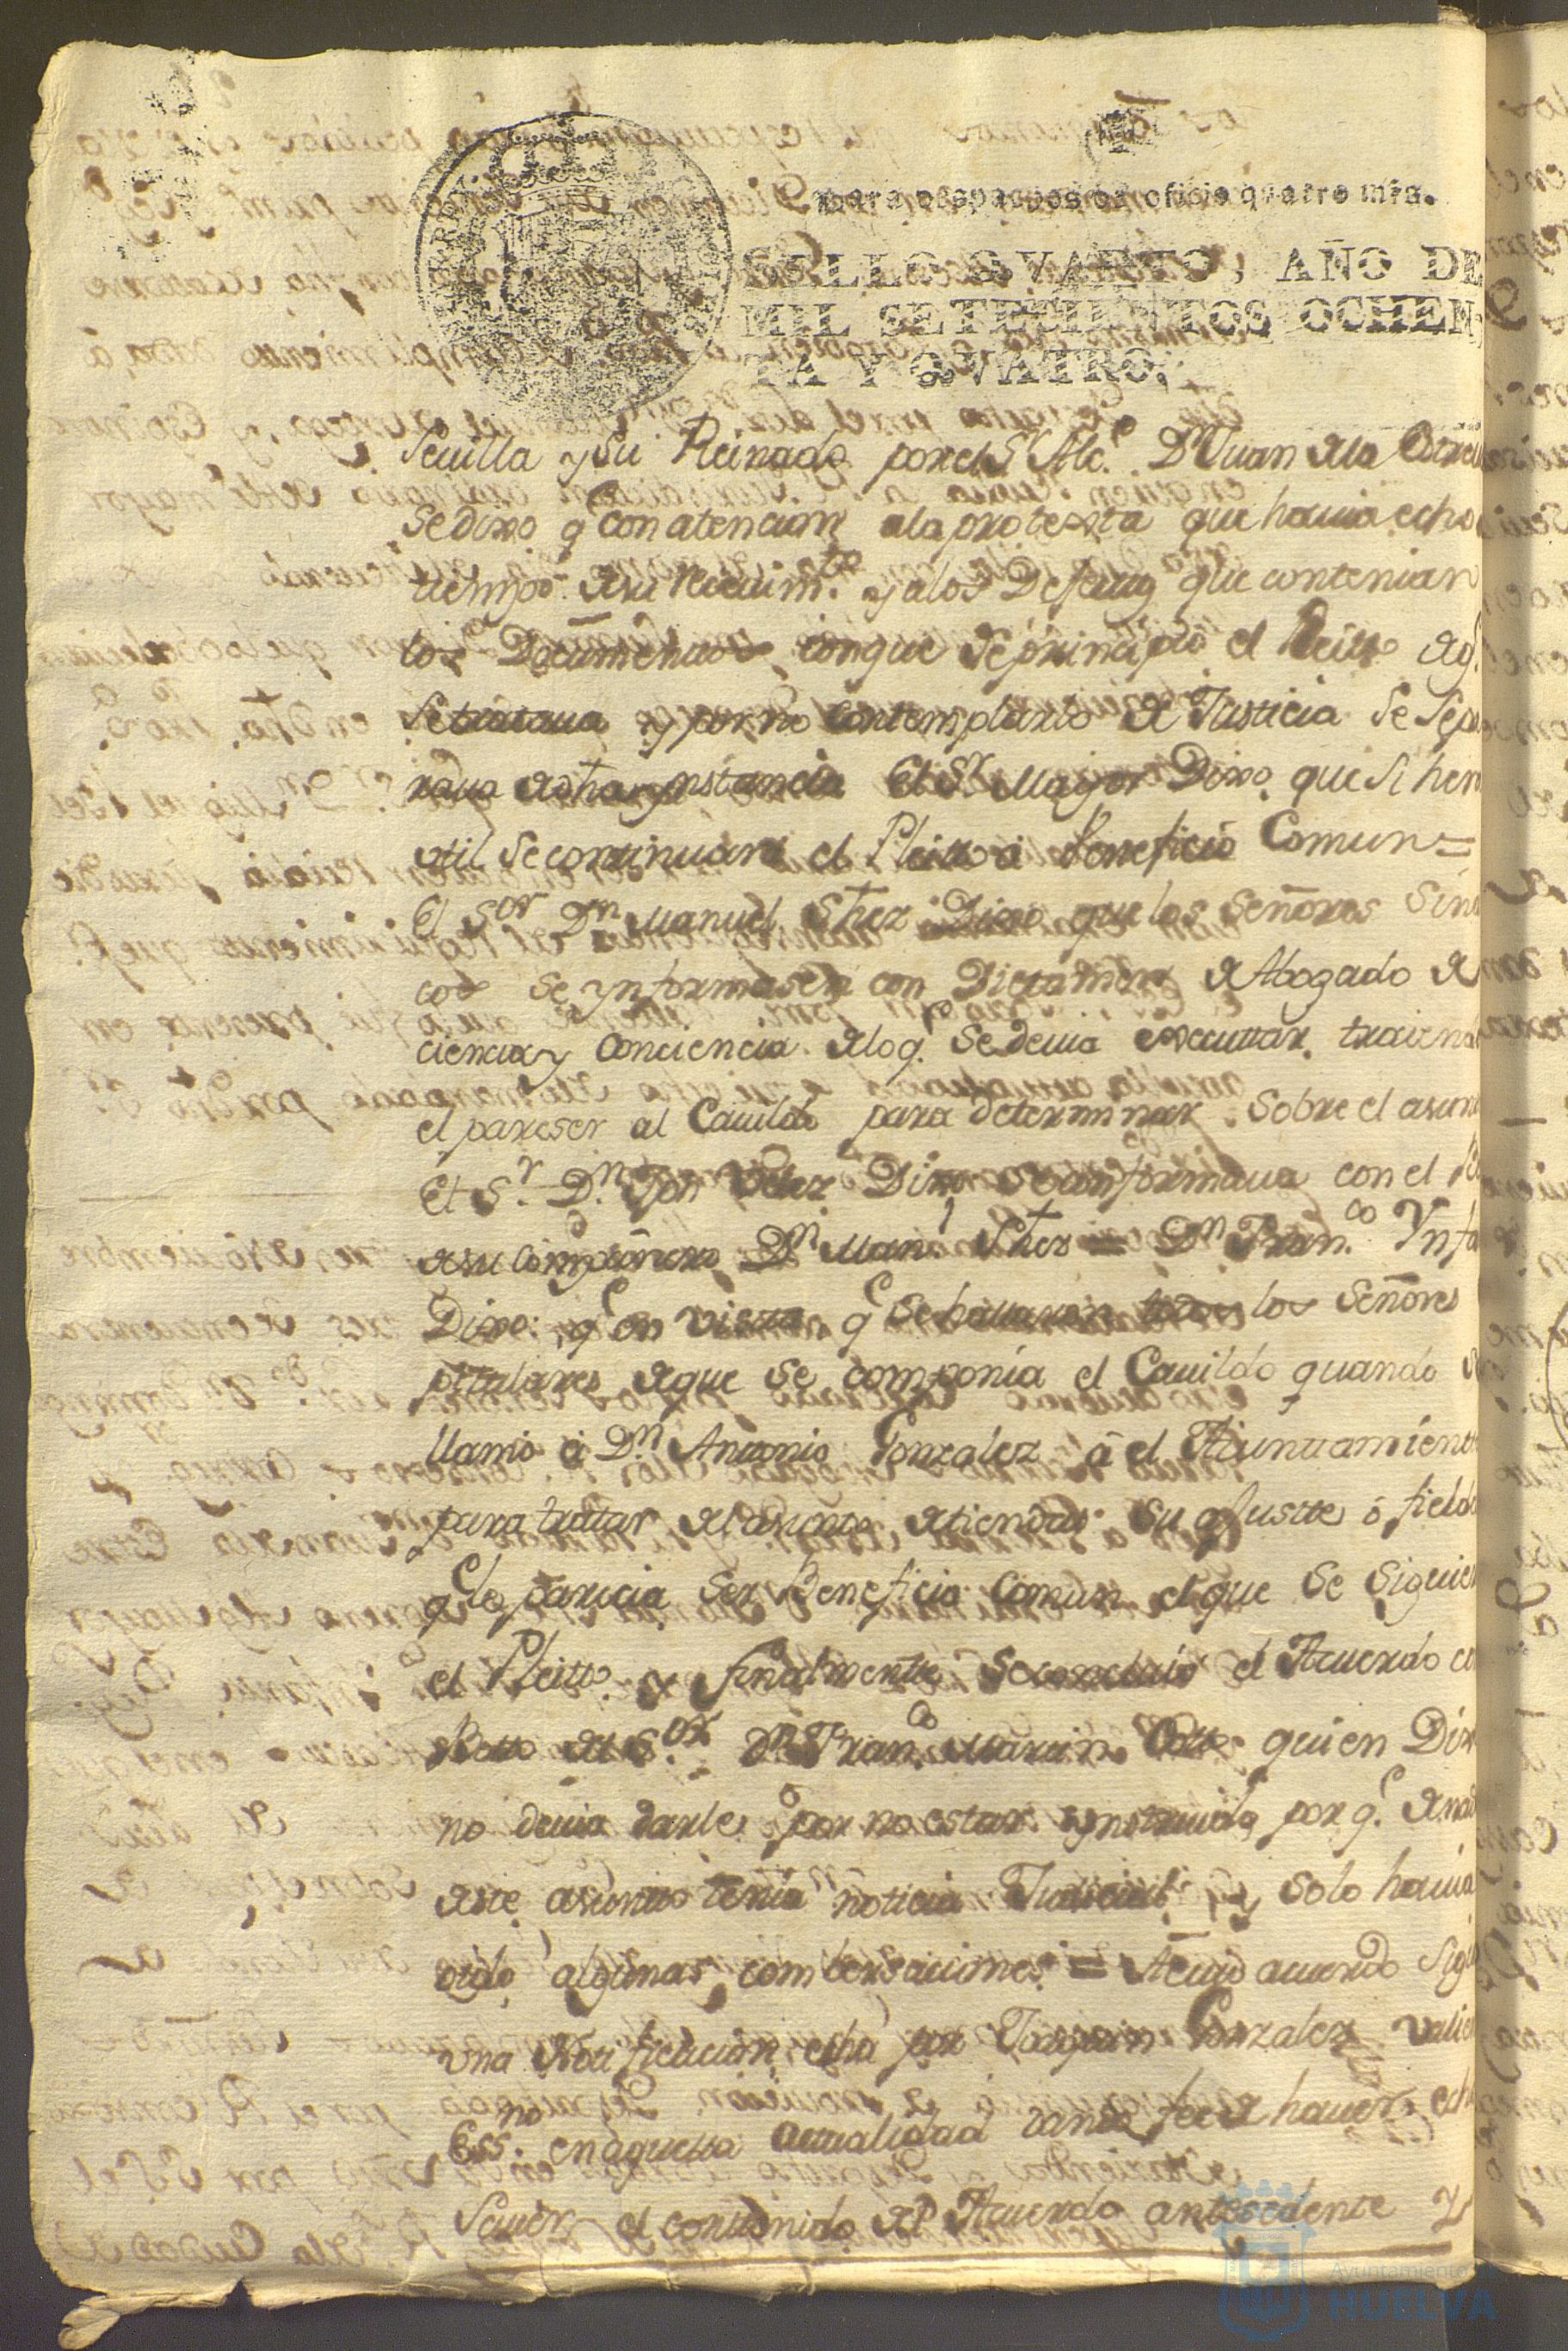 Para despachos de oficio quatro mrs.
SELLO QVARTO, AÑO DE
MIL SETECIENTOS OCHEN,
TA Y QVATRO.
Sevilla y su Reinado por el Sr. Alce. Dn Juan de la
Se dixo q con atencion ala protexta que havia echo
tiempo de su recivimto. y alos Defectos que contenian
los Documentos con que se principio el Pleito de q.
se tratava y por no contemplarlo de Justicia Se Sepa
rava de dha ynstancia El Sr. Mayor Dixo, que si hera
util se continuara el Pleito a Veneficio Comun =
El Sor Dn Manuel Shez Dixo que los Señores Sindi
cos se ynformasen con Dictamen de Abogado de
ciencia y Conciencia de lo q. se devia executtar, traiendo
el pareser al Cavildo para determinar sobre el asun
El Sr. Dn. Velez Dixo se conformava con el
de su compañero Dn Manl Shez = Dn Franco. Ynfa
Dixo: q en vista q se hallavan todos los Señores
pitulares de que se componia el Cavildo quando se
llamo a Dn Antonio Gonzalez á el Aiuntamiento
para tratar del asunto de tiendas Su ajuste ó fieldad
q le parecia ser Beneficio Comun el que se siguier
el Pleito. y finalmente se concluio el Acuerdo con
Botto del Sor Dn Franco Martin quien Dixo
no devia darle por no estar ynstruido por q. de nada
de este asunto tenia noticia Judicial y solo havia
oido algunas combersaciones = A cuio acuerdo Sigue
una Notificacion echa por Joaquin Gonzalez valien
Essno. en aquella actualidad dando fee de haver echo
Saver el contenido del Acuerdo antesedente
Ayuntamiento
HUELVA